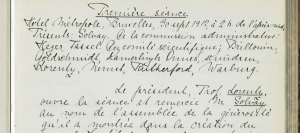 Première séance
Hôtel Métropole, Bruxelles, 30 sept 1912, à 2 h de l'après-midi
Présents: Solvay, de la commission administrative
Heger, Tassel, du comité scientifique; Brillouin,
Goldschmidt, Kamerlingh Onnes, Knudsen,
Lorentz, Nernst, Rutherford, Warburg.
Le président, Prof. Lorentz,
ouvre la séance et remercie M. Solvay
au nom de l'assemblée de la générosité
qu'il a montrée dans la création du